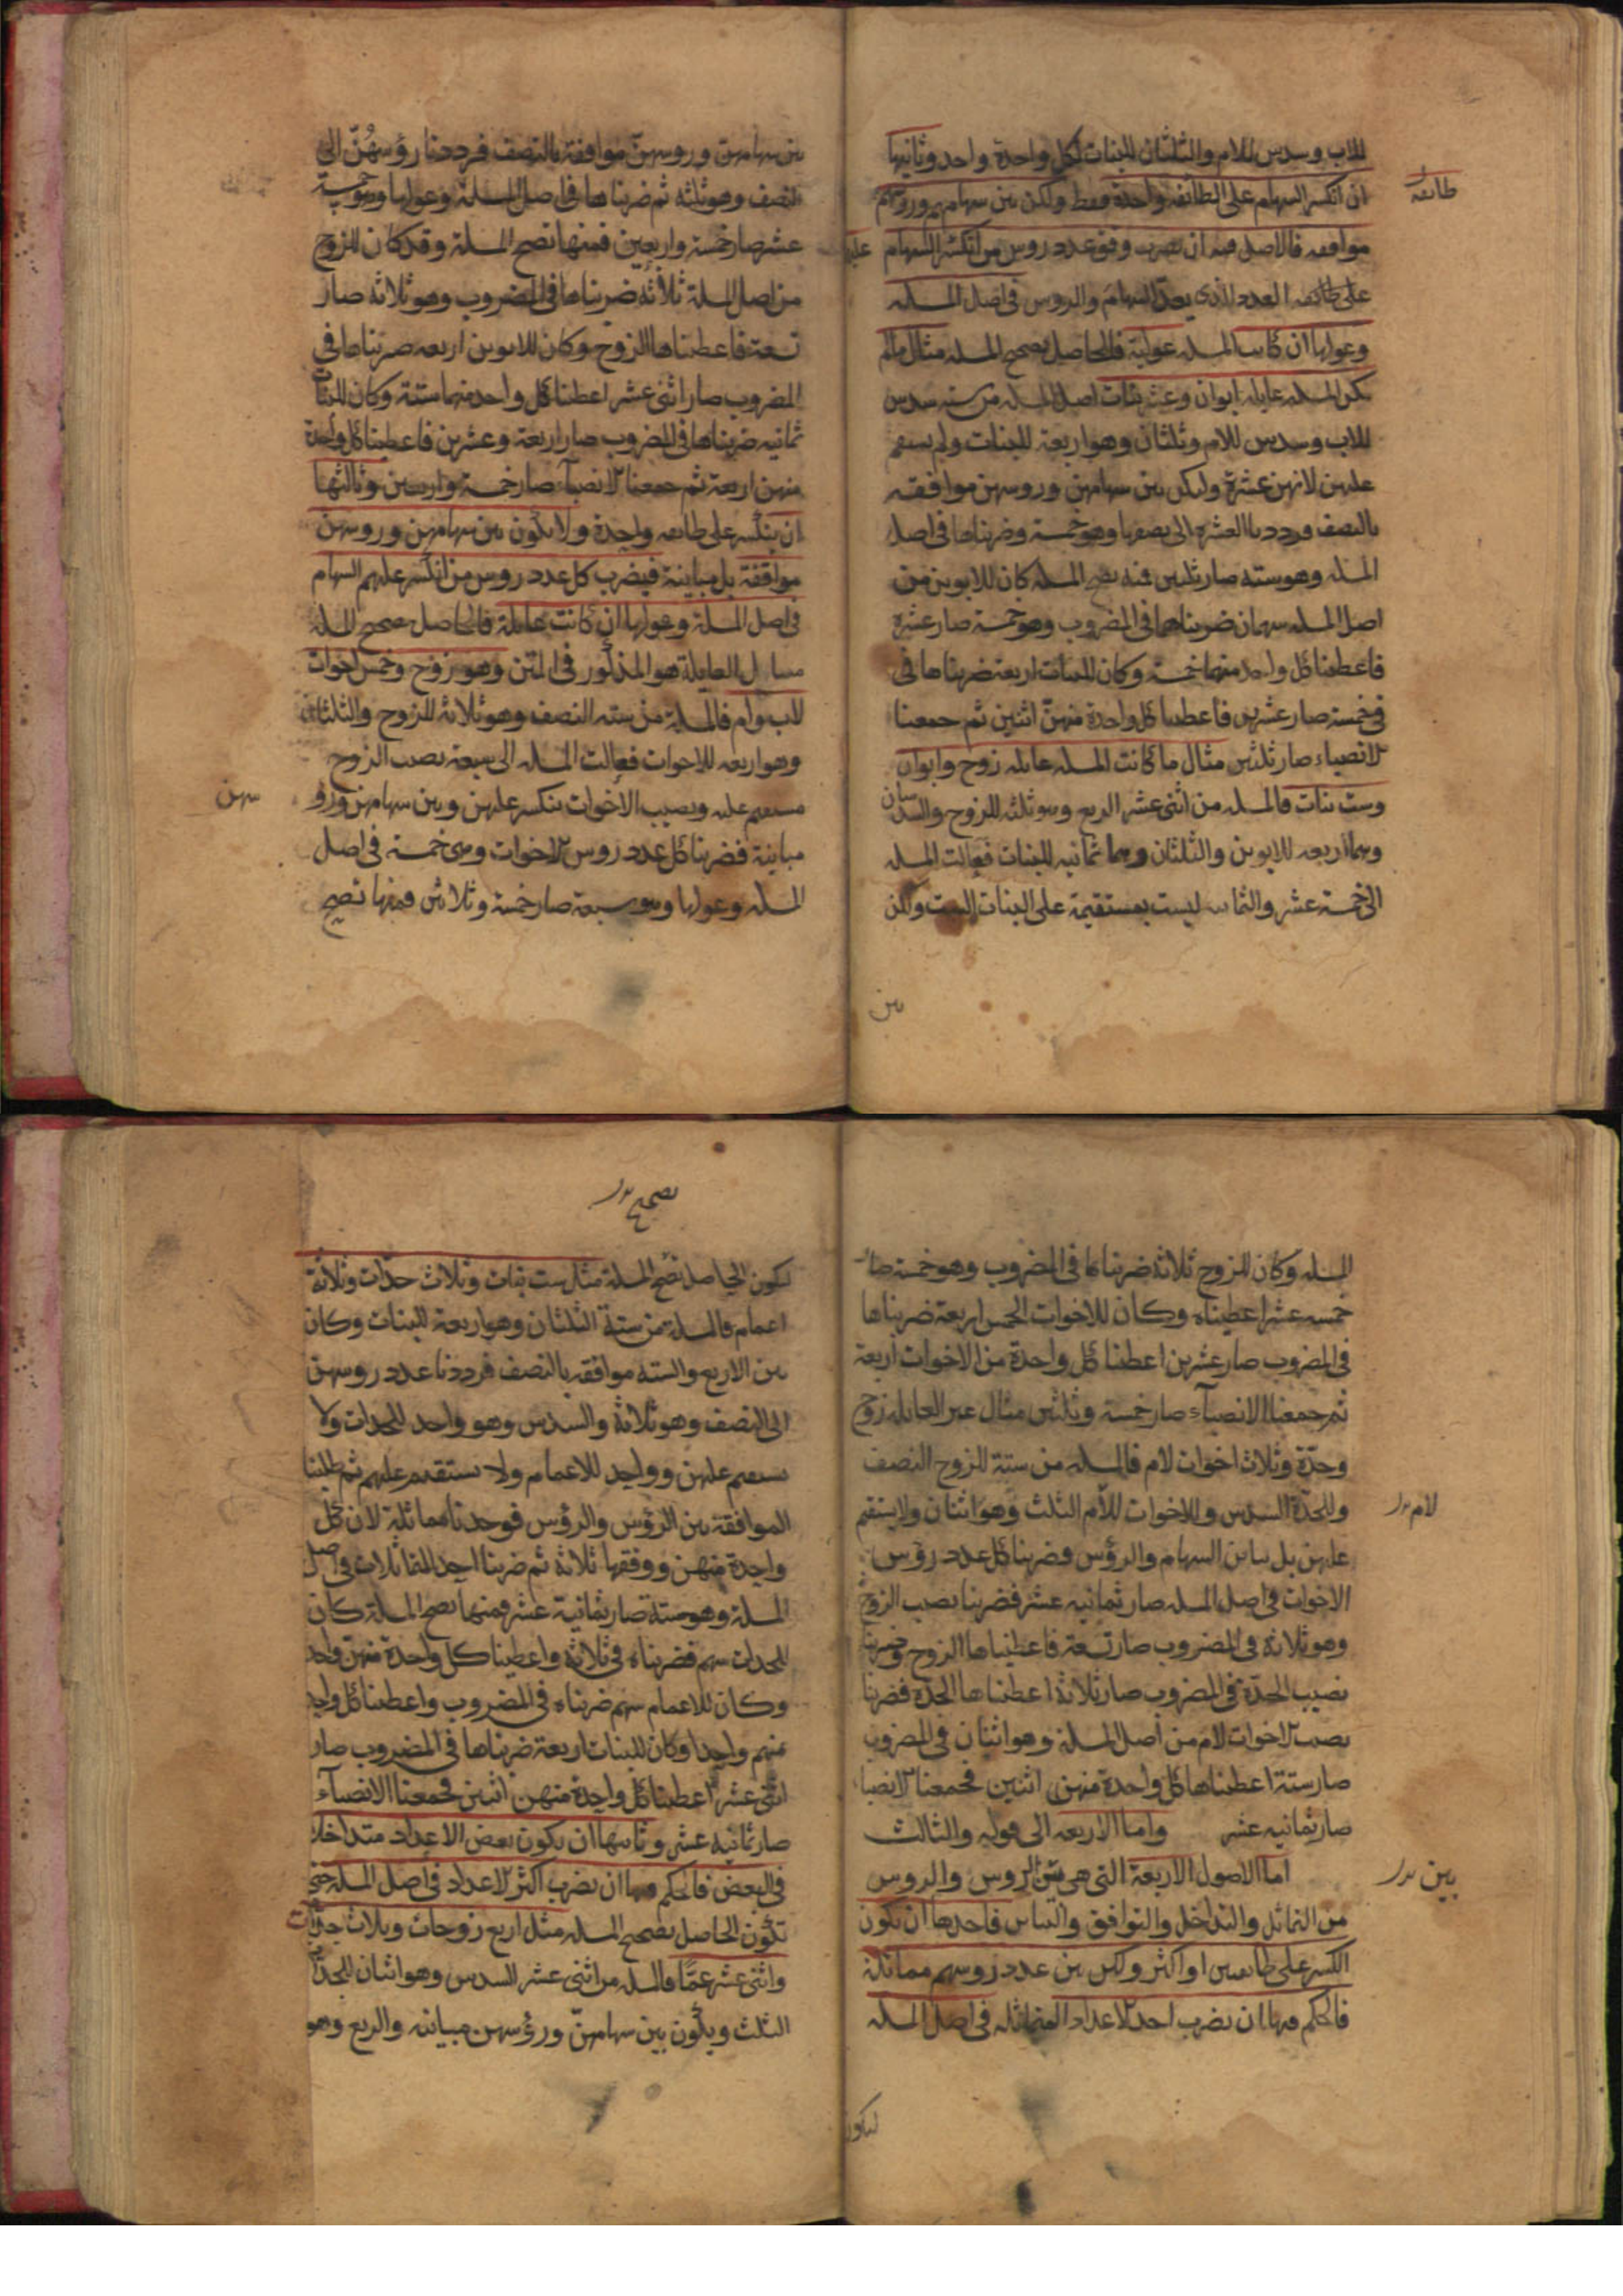 للاب وسدس للام والثلثان للبنات لكل واحدة واحد وثانيها
ان انكسر السهام على الطائفة واحدة فقط ولكن بين سهامهم وروسهم
طائفة
موافقة فالاصل فيه ان يضرب وفق عدد روس من انكسر السهام
عليها
على طائفة العدد الذى يعد السهام والروس فى اصل المسلة
وعولها ان كانت المسلة عولية فالحاصل تصحيح المسلة مثال مالم
يكن المسلة عايلة ابوان وعشر بنات اصل المسلة من ستة سدس
للاب وسدس للام وثلثان وهو اربعة للبنات ولم يستقم
عليهن لانهن عشرة ولكن بين سهامهن وروسهن موافقة
بالنصف فرددنا العشرة الى نصفها وهو خمسة وضربناها فى اصل
المسلة وهو ستة صار ثلثين فمنه تصح المسلة كان للابوين من
اصل المسلة سهمان ضربناهما فى المضروب وهو خمسة صار عشرة
فاعطينا كل واحد منهما خمسة وكان للبنات اربعة ضربناها فى
فى خمسة صار عشرين فاعطينا كل واحدة منهن اثنين ثم جمعنا
الانصباء صار ثلثين مثال ما كانت المسلة عايلة زوج وابوان
وست بنات فالمسلة من اثنى عشر الربع وهو ثلثة للزوج والسدسان
وهما اربعة للابوين والثلثان وهما ثمانية للبنات فعالت المسلة
الى خمسة عشر والثمانية ليست بمستقيمة على البنات الست ولكن
بين
بين سهامهن وروسهن موافقة بالنصف فرددنا رؤسهن الى
النصف وهو ثلثة ثم ضربناها فى اصل المسلة وعولها وهو خمسة
عشر صار خمسة واربعين فمنها تصح المسلة وقد كان للزوج
من اصل المسلة ثلاثة ضربناها فى المضروب وهو ثلاثة صار
تسعة فاعطيناها الزوج وكان للابوين اربعة ضربناها فى
المضروب صار اثنى عشر اعطينا كل واحد منهما ستة وكان للبنات
ثمانية ضربناها فى المضروب صار اربعة وعشرين فاعطينا كل واحدة
منهن اربعة ثم جمعنا الانصباء صار خمسة واربعين وثالثها
ان ينكسر على طايفة واحدة ولا يكون بين سهامهن وروسهن
موافقة بل مباينة فيضرب كل عدد روس من انكسر عليهم السهام
فى اصل المسلة وعولها ان كانت عايلة فالحاصل تصحيح المسلة
مسايل العايلة هو المذكور فى المتن وهو زوج وخمس اخوات
لاب وام فالمسلة من ستة النصف وهو ثلاثة للزوج والثلثان
وهو اربعة للاخوات فعالت المسلة الى سبعة نصيب الزوج
مستقيم عليه ونصيب الاخوات ينكسر عليهن وبين سهامهن ورو
سهن
مباينة فضربنا كل عدد روس الاخوات وهى خمسة فى اصل
المسلة وعولها وهو سبعة صار خمسة وثلاثين فمنها تصح
المسلة وكان للزوج ثلاثة ضربناها فى المضروب وهو خمسة صار
خمسة عشر اعطيناه وكان للاخوات الخمس اربعة ضربناها
فى المضروب صار عشرين اعطينا كل واحدة من الاخوات اربعة
ثم جمعنا الانصباء صار خمسة وثلثين مثال غير العايلة زوج
وجدة وثلاث اخوات لام فالمسلة من ستة للزوج النصف
وللجدة السدس وللاخوات للأم الثلث وهو اثنان ولا يستقيم
لام
عليهن بل تباين السهام والرؤس فضربنا كل عدد رؤس
الاخوات فى اصل المسلة صار ثمانية عشر فضربنا نصيب الزوج
وهو ثلاثة فى المضروب صار تسعة فاعطيناها الزوج وضربنا
نصيب الجدة فى المضروب صار ثلاثة اعطيناها الجدة فضربنا
نصيب الاخوات لام من اصل المسلة وهو اثنان فى المضروب
صار ستة اعطيناها كل واحدة منهن اثنين فجمعنا الانصبا
صار ثمانية عشر واما الاربعة الى قوله والثالث
اما الاصول الاربعة التى هى بين الروس والروس
بين
من التماثل والتداخل والتوافق والتباين فاحدها ان يكون
الكسر على طايفتين او اكثر ولكن بين عدد روسهم مماثلة
فالحكم فيها ان يضرب احد الاعداد المتماثلة فى اصل المسلة
ليكون
تصحيح
ليكون الحاصل تصح المسلة مثل ست بنات وثلاث جدات وثلاثة
اعمام فالمسلة من ستة الثلثان وهو اربعة للبنات وكان
بين الاربع والستة موافقة بالنصف فرددنا عدد روسهن
الى النصف وهو ثلاثة والسدس وهو واحد للجدات ولا
يستقيم عليهن وواحد للاعمام ولا يستقيم عليهم ثم طلبنا
الموافقة بين الرؤس والرؤس فوجدناها مماثلة لان كل
واحدة منهن ووفقها ثلاثة ثم ضربنا احد المتماثلات فى اصل
المسلة وهو ستة صار ثمانية عشر فمنها تصح المسلة كان
للجدات سهم فضربناه فى ثلاثة واعطينا كل واحدة منهن واحد
وكان للاعمام سهم ضربناه فى المضروب واعطينا كل واحد
منهم واحدا وكان للبنات اربعة ضربناها فى المضروب صار
اثنى عشر اعطينا كل واحدة منهن اثنين فجمعنا الانصباء
صار ثمانية عشر وثانيها ان يكون بعض الاعداد متداخلا
فى البعض فالحكم فيها ان يضرب اكثر الاعداد فى اصل المسلة حتى
تكون الحاصل تصحيح المسلة مثل اربع زوجات وثلاث جدات
واثنى عشر عما فالمسلة من اثنى عشر السدس وهو اثنان للجدات
الثلث ويكون بين سهامهن ورؤسهن مباينة والربع وهو